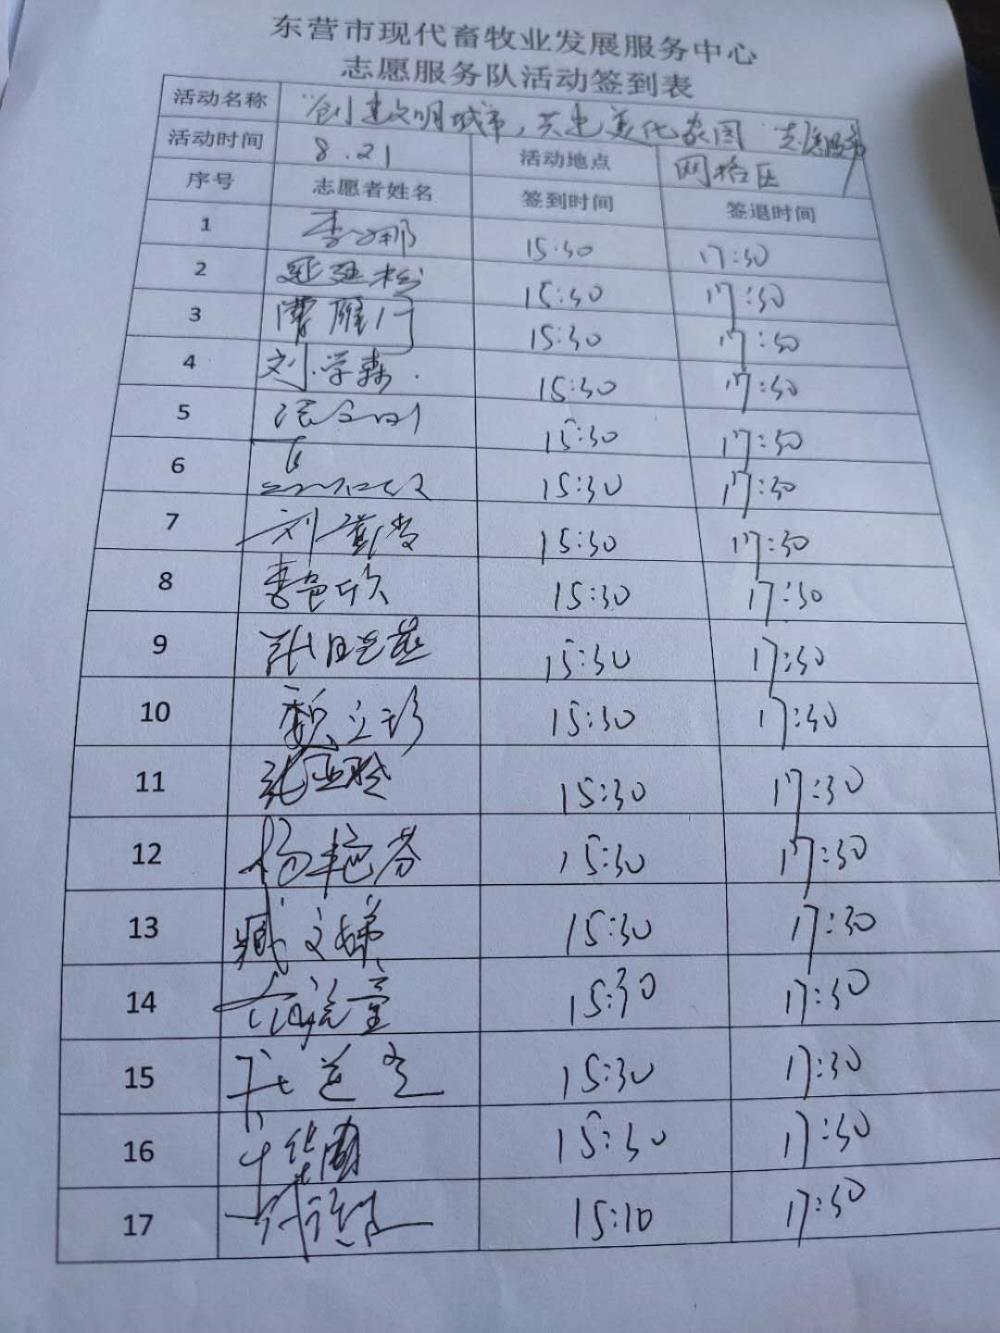 东营市现代畜牧业发展服务中心
志愿服务队活动签到表
活动名称 "创建文明城市，共建美化家园"志愿服务
活动时间 8.21 活动地点 网格区
序号 志愿者姓名 签到时间 签退时间
1 李娜 15:30 17:30
2 15:30 17:30
3 曹雁行 15:30 17:30
4 刘学森 15:30 17:30
5 15:30 17:30
6 15:30 17:30
7 刘 15:30 17:30
8 李色欣 15:30 17:30
9 15:30 17:30
10 魏立珍 15:30 17:30
11 张亚玲 15:30 17:30
12 杨艳芬 15:30 17:30
13 臧文娣 15:30 17:30
14 15:30 17:30
15 15:30 17:30
16 15:30 17:30
17 15:10 17:30